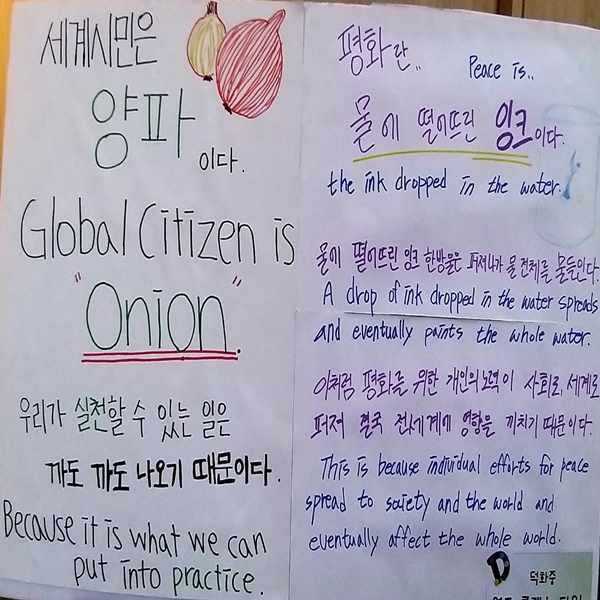 세계시민은
양파
이다.
Global Citizen is
"Onion".
우리가 실천할 수 있는 일은
까도 까도 나오기 때문이다.
Because it is what we can
put into practice.
평화란..
Peace is..
물에 떨어뜨린 잉크이다.
the ink dropped in the water.
물에 떨어뜨린 잉크 한방울은 퍼져나가 물 전체를 물들인다.
A drop of ink dropped in the water spreads
and eventually paints the whole water.
이처럼 평화를 위한 개인의 노력이 사회로, 세계로
퍼져 결국 전세계에 영향을 끼치기 때문이다.
This is because individual efforts for peace
spread to society and the world and
eventually affect the whole world.
덕화중